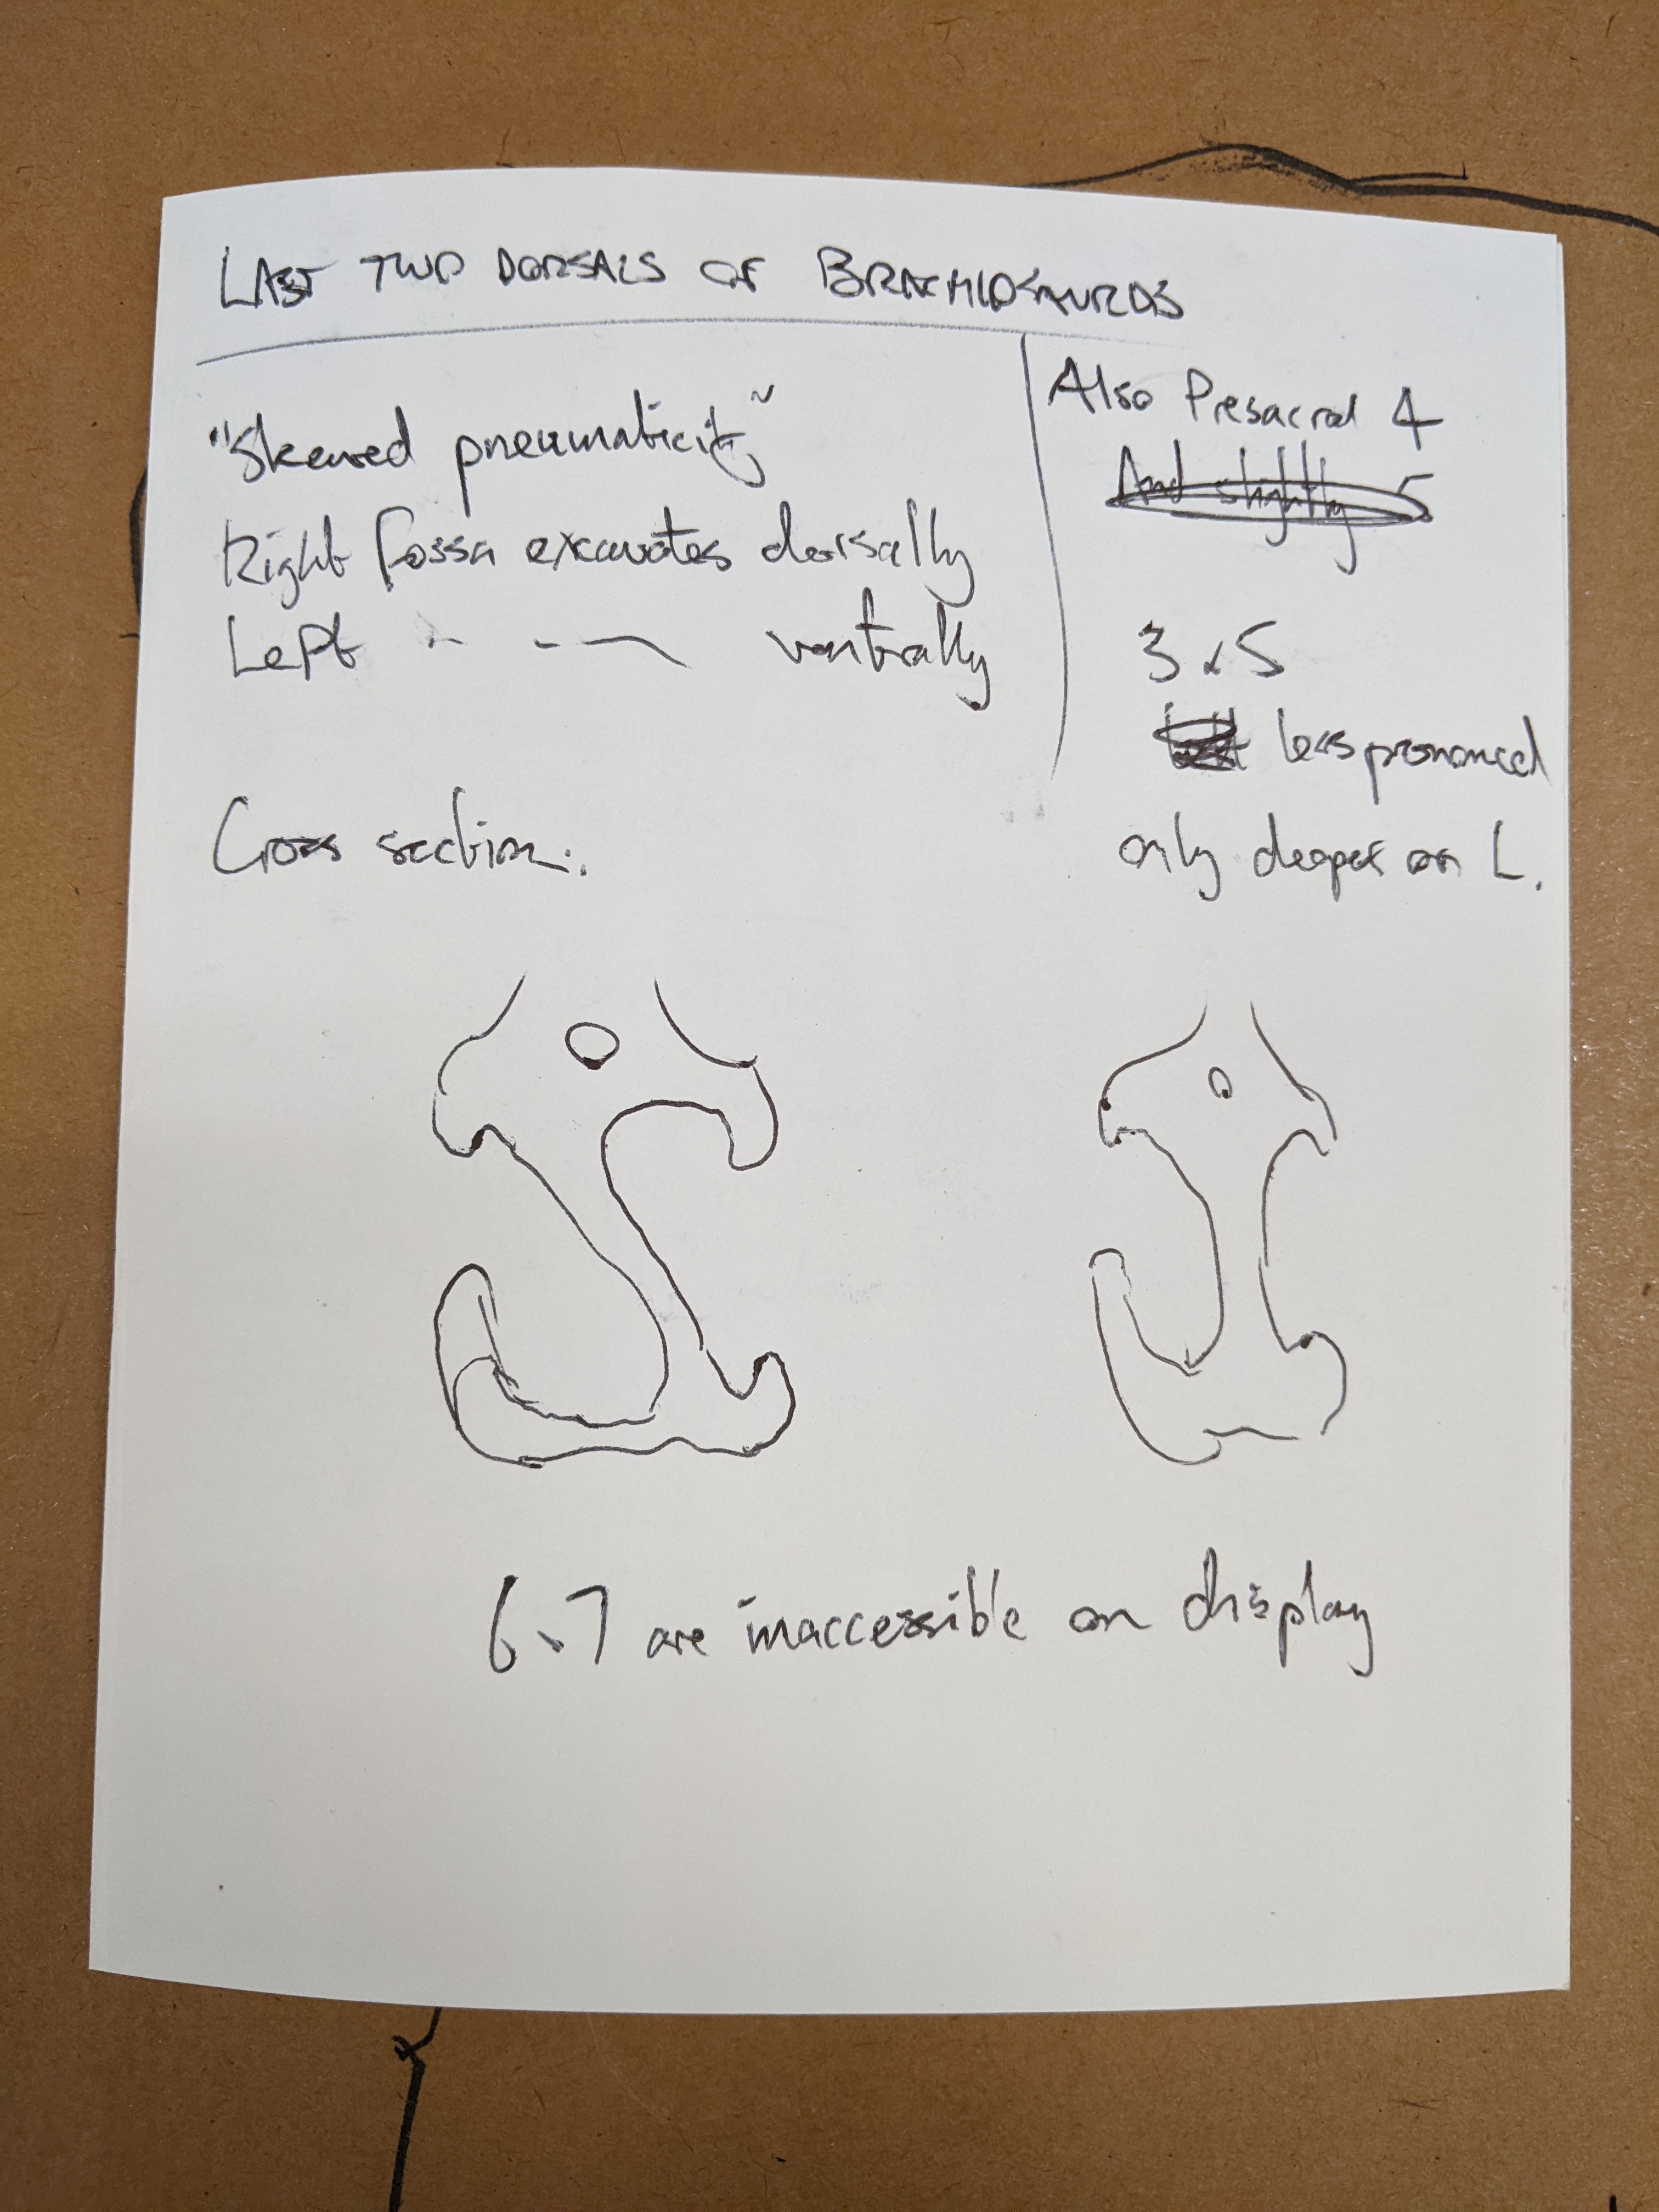 LAST TWO DORSALS OF BRACHIOSAURUS
"Skewed pneumaticity"
Right fossa excavates dorsally
Left " - — ventrally
Cross section:
Also Presacral 4
And slightly 5
3 & 5
less pronounced
only deeper on L.
6 & 7 are inaccessible on display